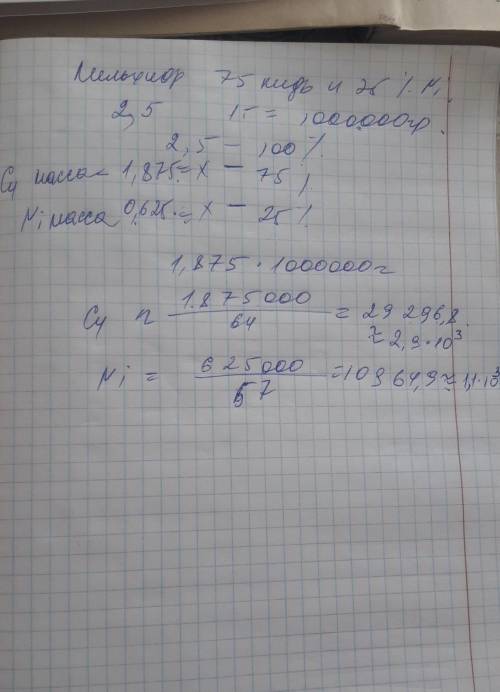 Мельхиор 75 медь и 25 % Ni
2,5 1т = 1000000гр.
2,5 – 100 %
Cu масса 1,875 = x – 75 %
Ni масса 0,625 = x – 25 %
1,875 · 1000000 =
Cu n 1875000 / 64 = 29296,8
≈ 2,9·10³
Ni = 625000 / 57 = 10964,9 ≈ 1,1·10³